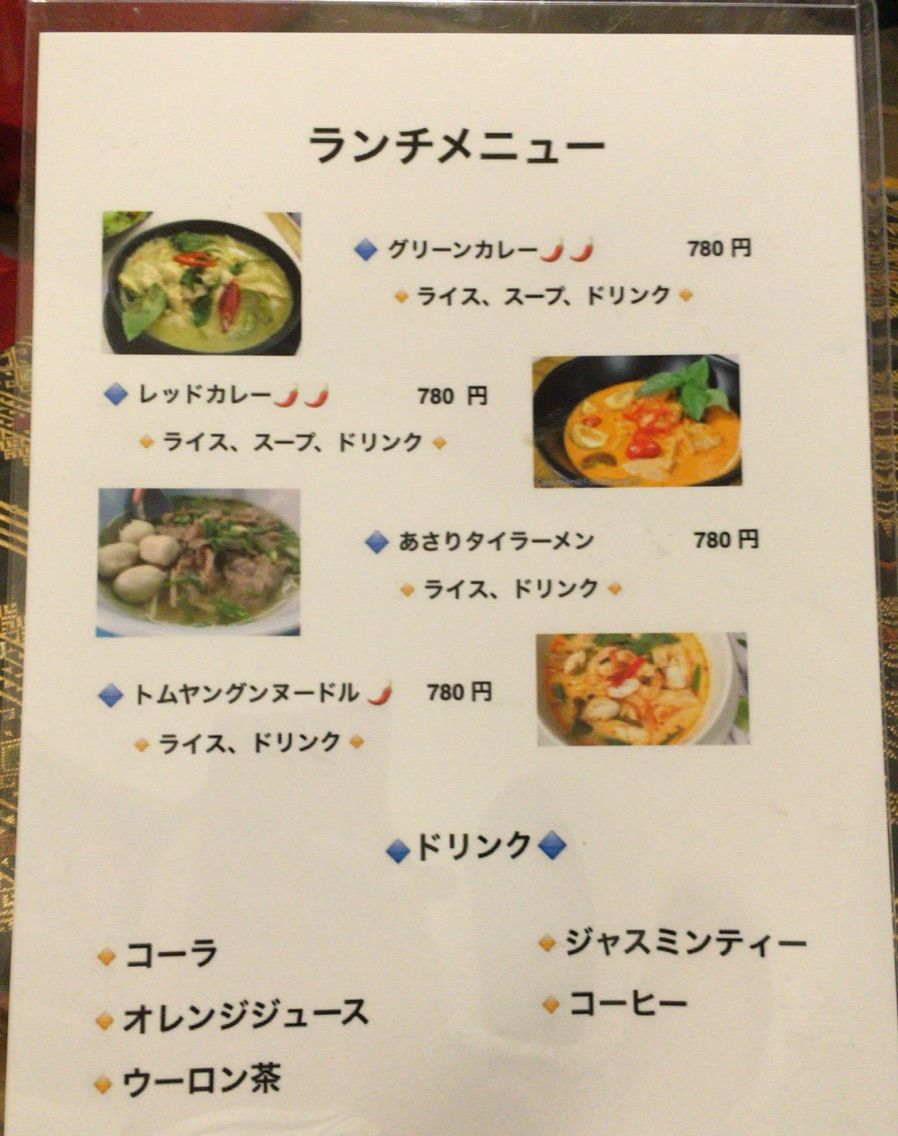 ランチメニュー
🔷 グリーンカレー🌶🌶 780 円
🔸 ライス、スープ、ドリンク 🔸
🔷 レッドカレー🌶🌶 780 円
🔸 ライス、スープ、ドリンク 🔸
🔷 あさりタイラーメン 780 円
🔸 ライス、ドリンク 🔸
🔷 トムヤングンヌードル 🌶 780 円
🔸 ライス、ドリンク 🔸
🔷ドリンク🔷
🔸 コーラ
🔸 オレンジジュース
🔸 ウーロン茶
🔸 ジャスミンティー
🔸 コーヒー